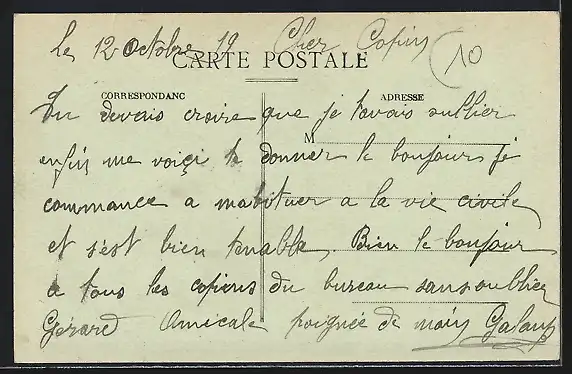 Le 12 Octobre 19 Cher Copin
10
CARTE POSTALE
CORRESPONDANC
ADRESSE
Tu devais croire que je tavais oublier
M
enfin me voiçi te donner le bonjour je
commance a mabituer a la vie civile
et s'est bien tenable. Bien le bonjour
a tous les copiens du bureau sans oublier
Gérard Amicale poignée de main Galaup